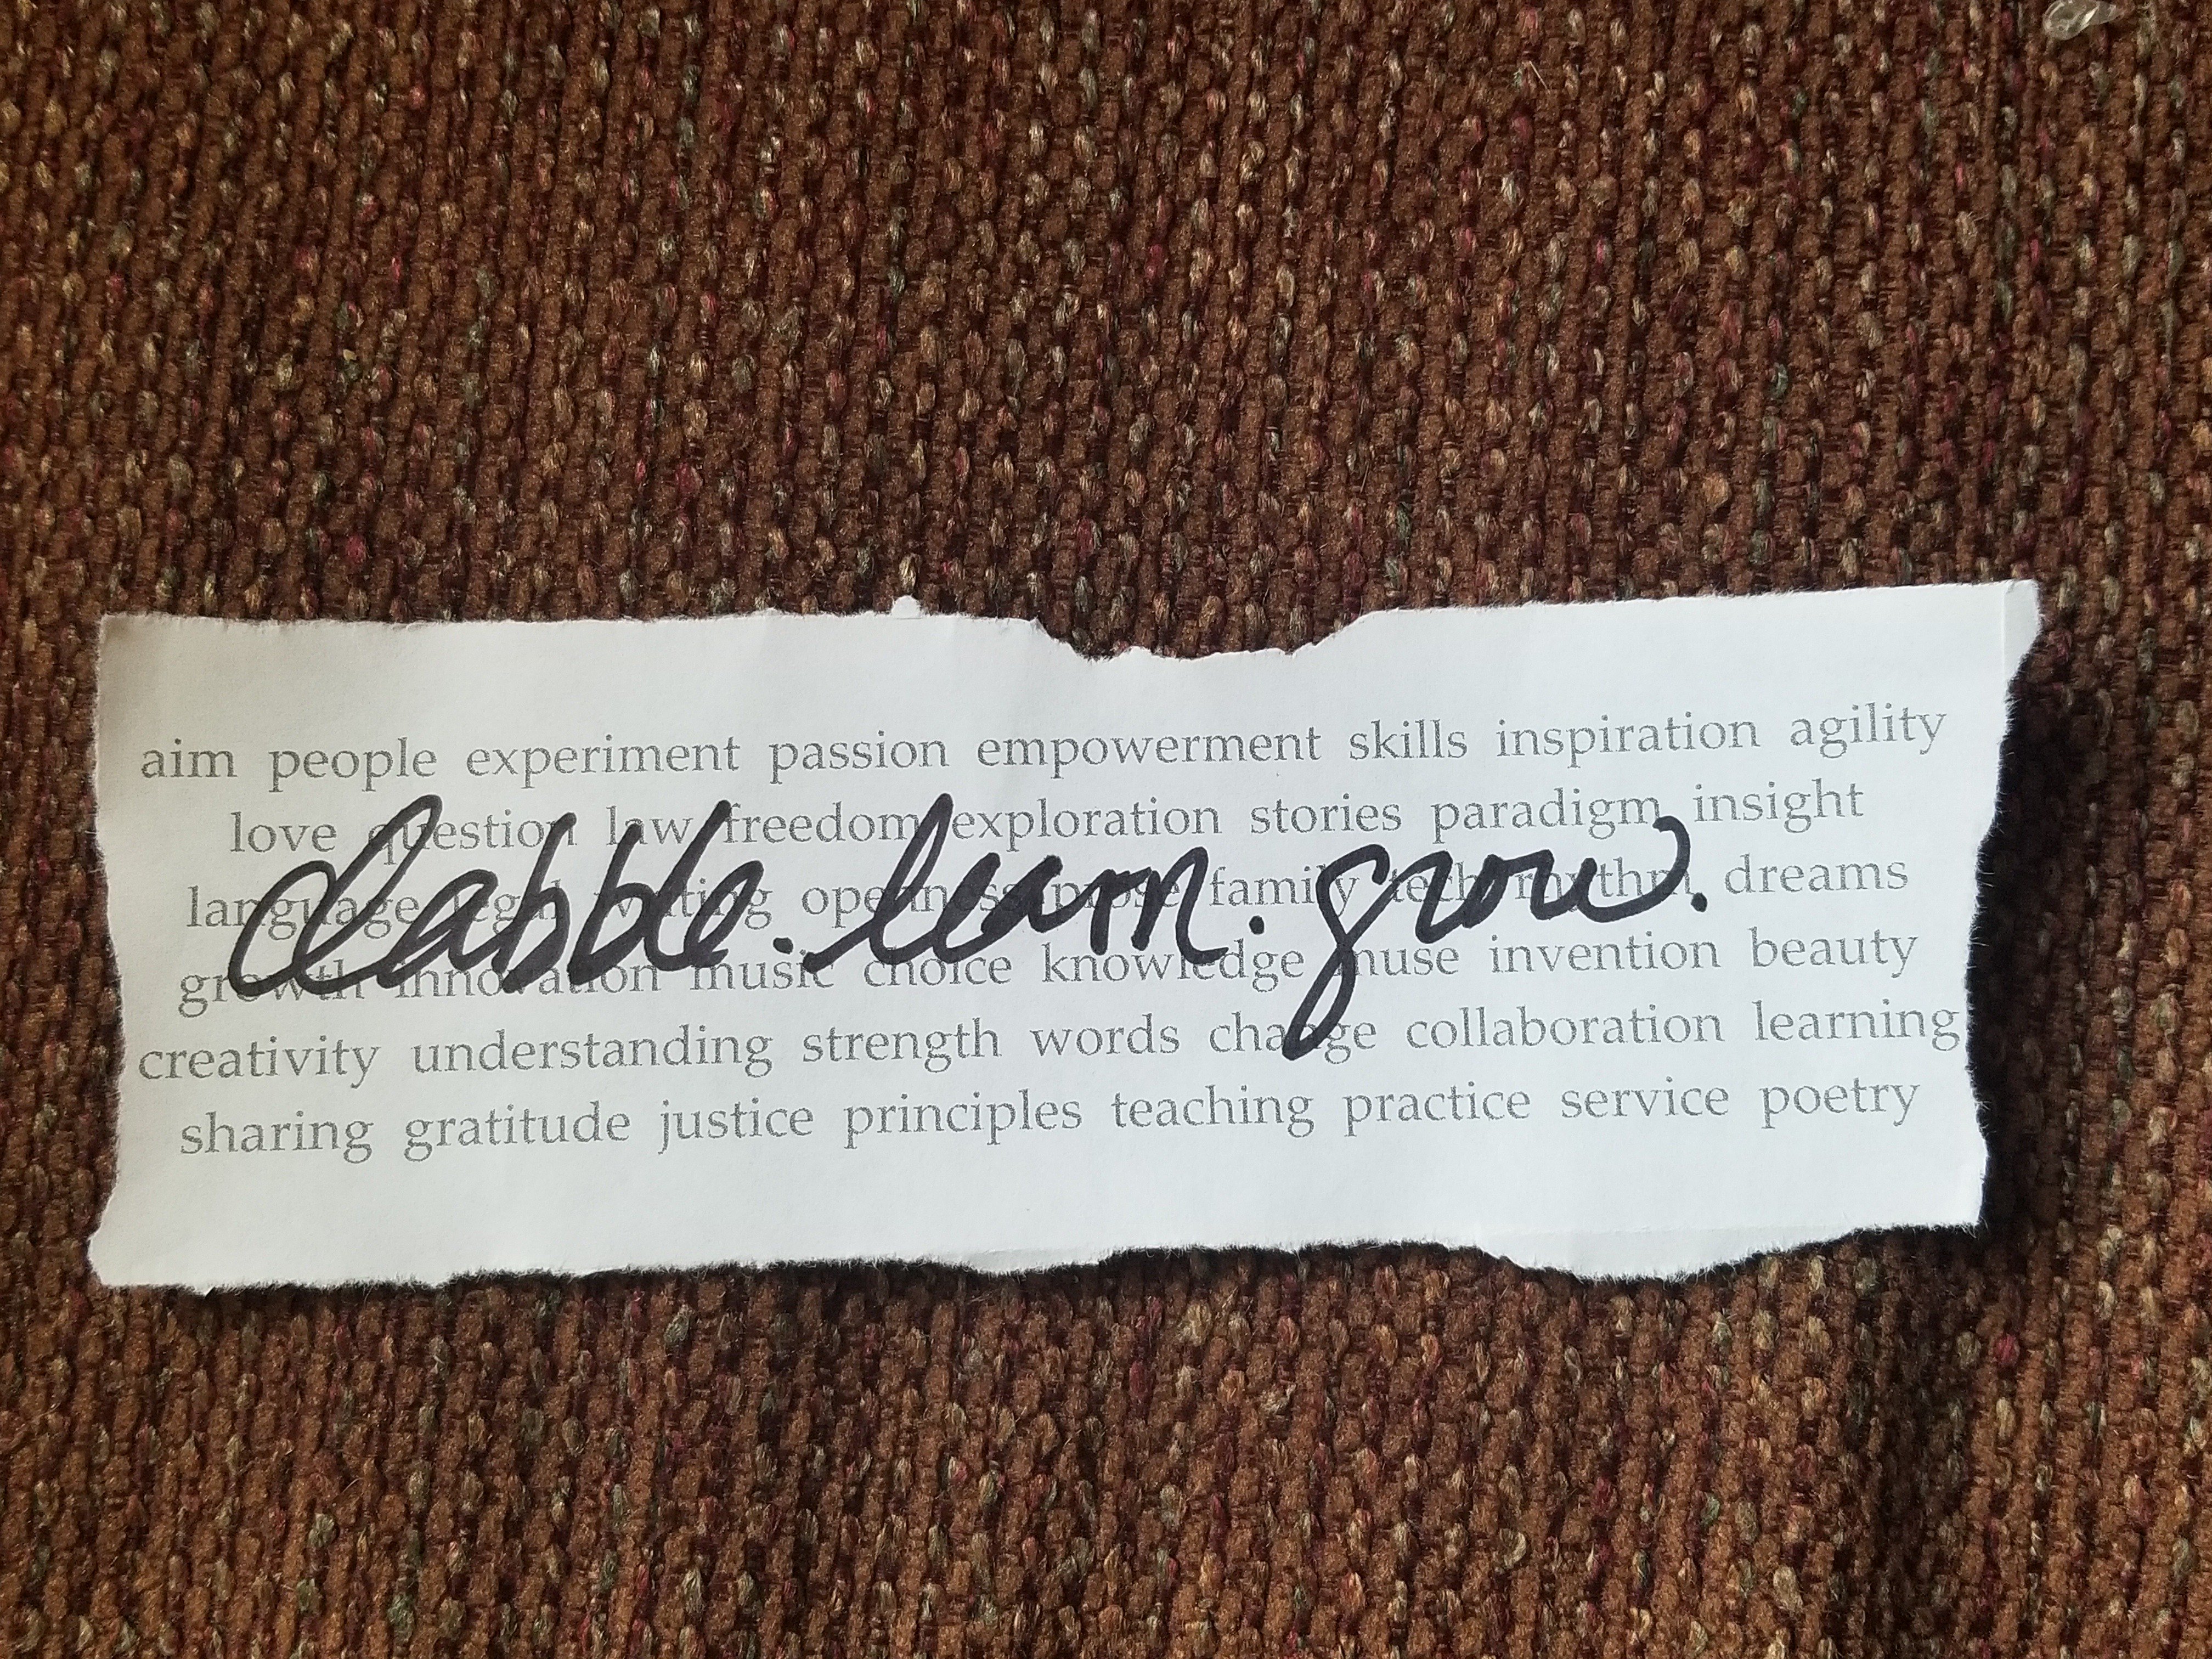 aim people experiment passion empowerment skills inspiration agility
love question law freedom exploration stories paradigm insight
dabble. learn. grow.
language legal writing openness prose family tech rhythm dreams
growth innovation music choice knowledge muse invention beauty
creativity understanding strength words change collaboration learning
sharing gratitude justice principles teaching practice service poetry